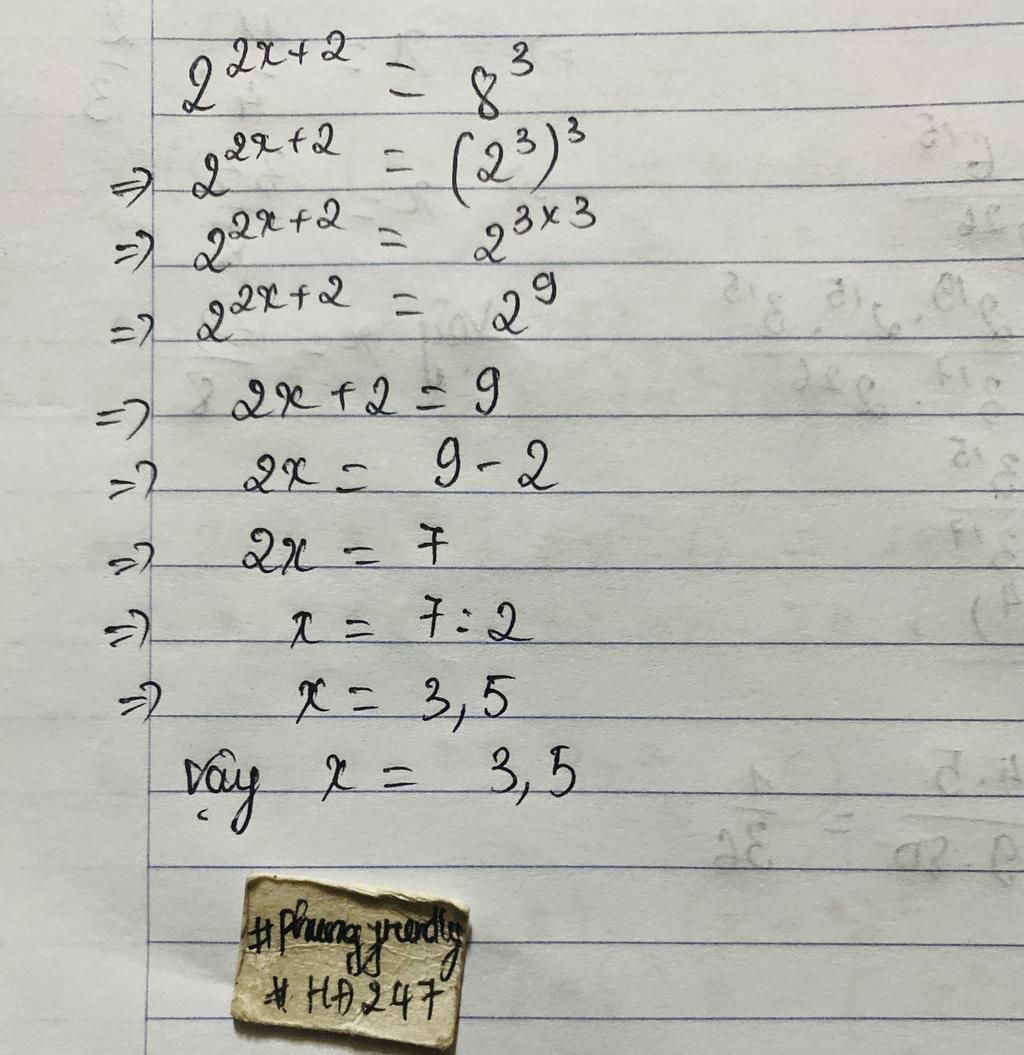 2^{2x+2} = 8^3
=> 2^{2x+2} = (2^3)^3
=> 2^{2x+2} = 2^{3×3}
=> 2^{2x+2} = 2^9
=> 2x + 2 = 9
=> 2x = 9 - 2
=> 2x = 7
=> x = 7 : 2
=> x = 3,5
Vậy x = 3,5
#Phung
#HĐ247